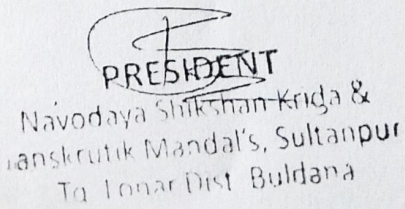 PRESIDENT
Navodaya Shikshan Krida &
anskrutik Mandal's, Sultanpur
Tq Lonar Dist Buldana